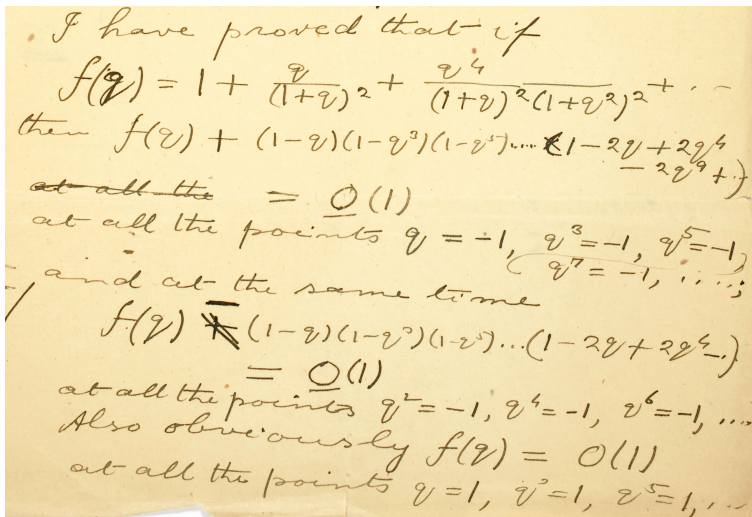 I have proved that if
f(q) = 1 + q/(1+q)² + q⁴/((1+q)²(1+q²)²) + ...
then f(q) + (1-q)(1-q³)(1-q⁵)....(1-2q+2q⁴
-2q⁹+..)
at all the = O(1)
at all the points q = -1, q³=-1, q⁵=-1,
q⁷ = -1, ....;
and at the same time
f(q) - (1-q)(1-q³)(1-q⁵)...(1-2q+2q⁴...)
= O(1)
at all the points q² = -1, q⁴ = -1, q⁶ = -1, ....
Also obviously f(q) = O(1)
at all the points q=1, q³=1, q⁵=1, ...